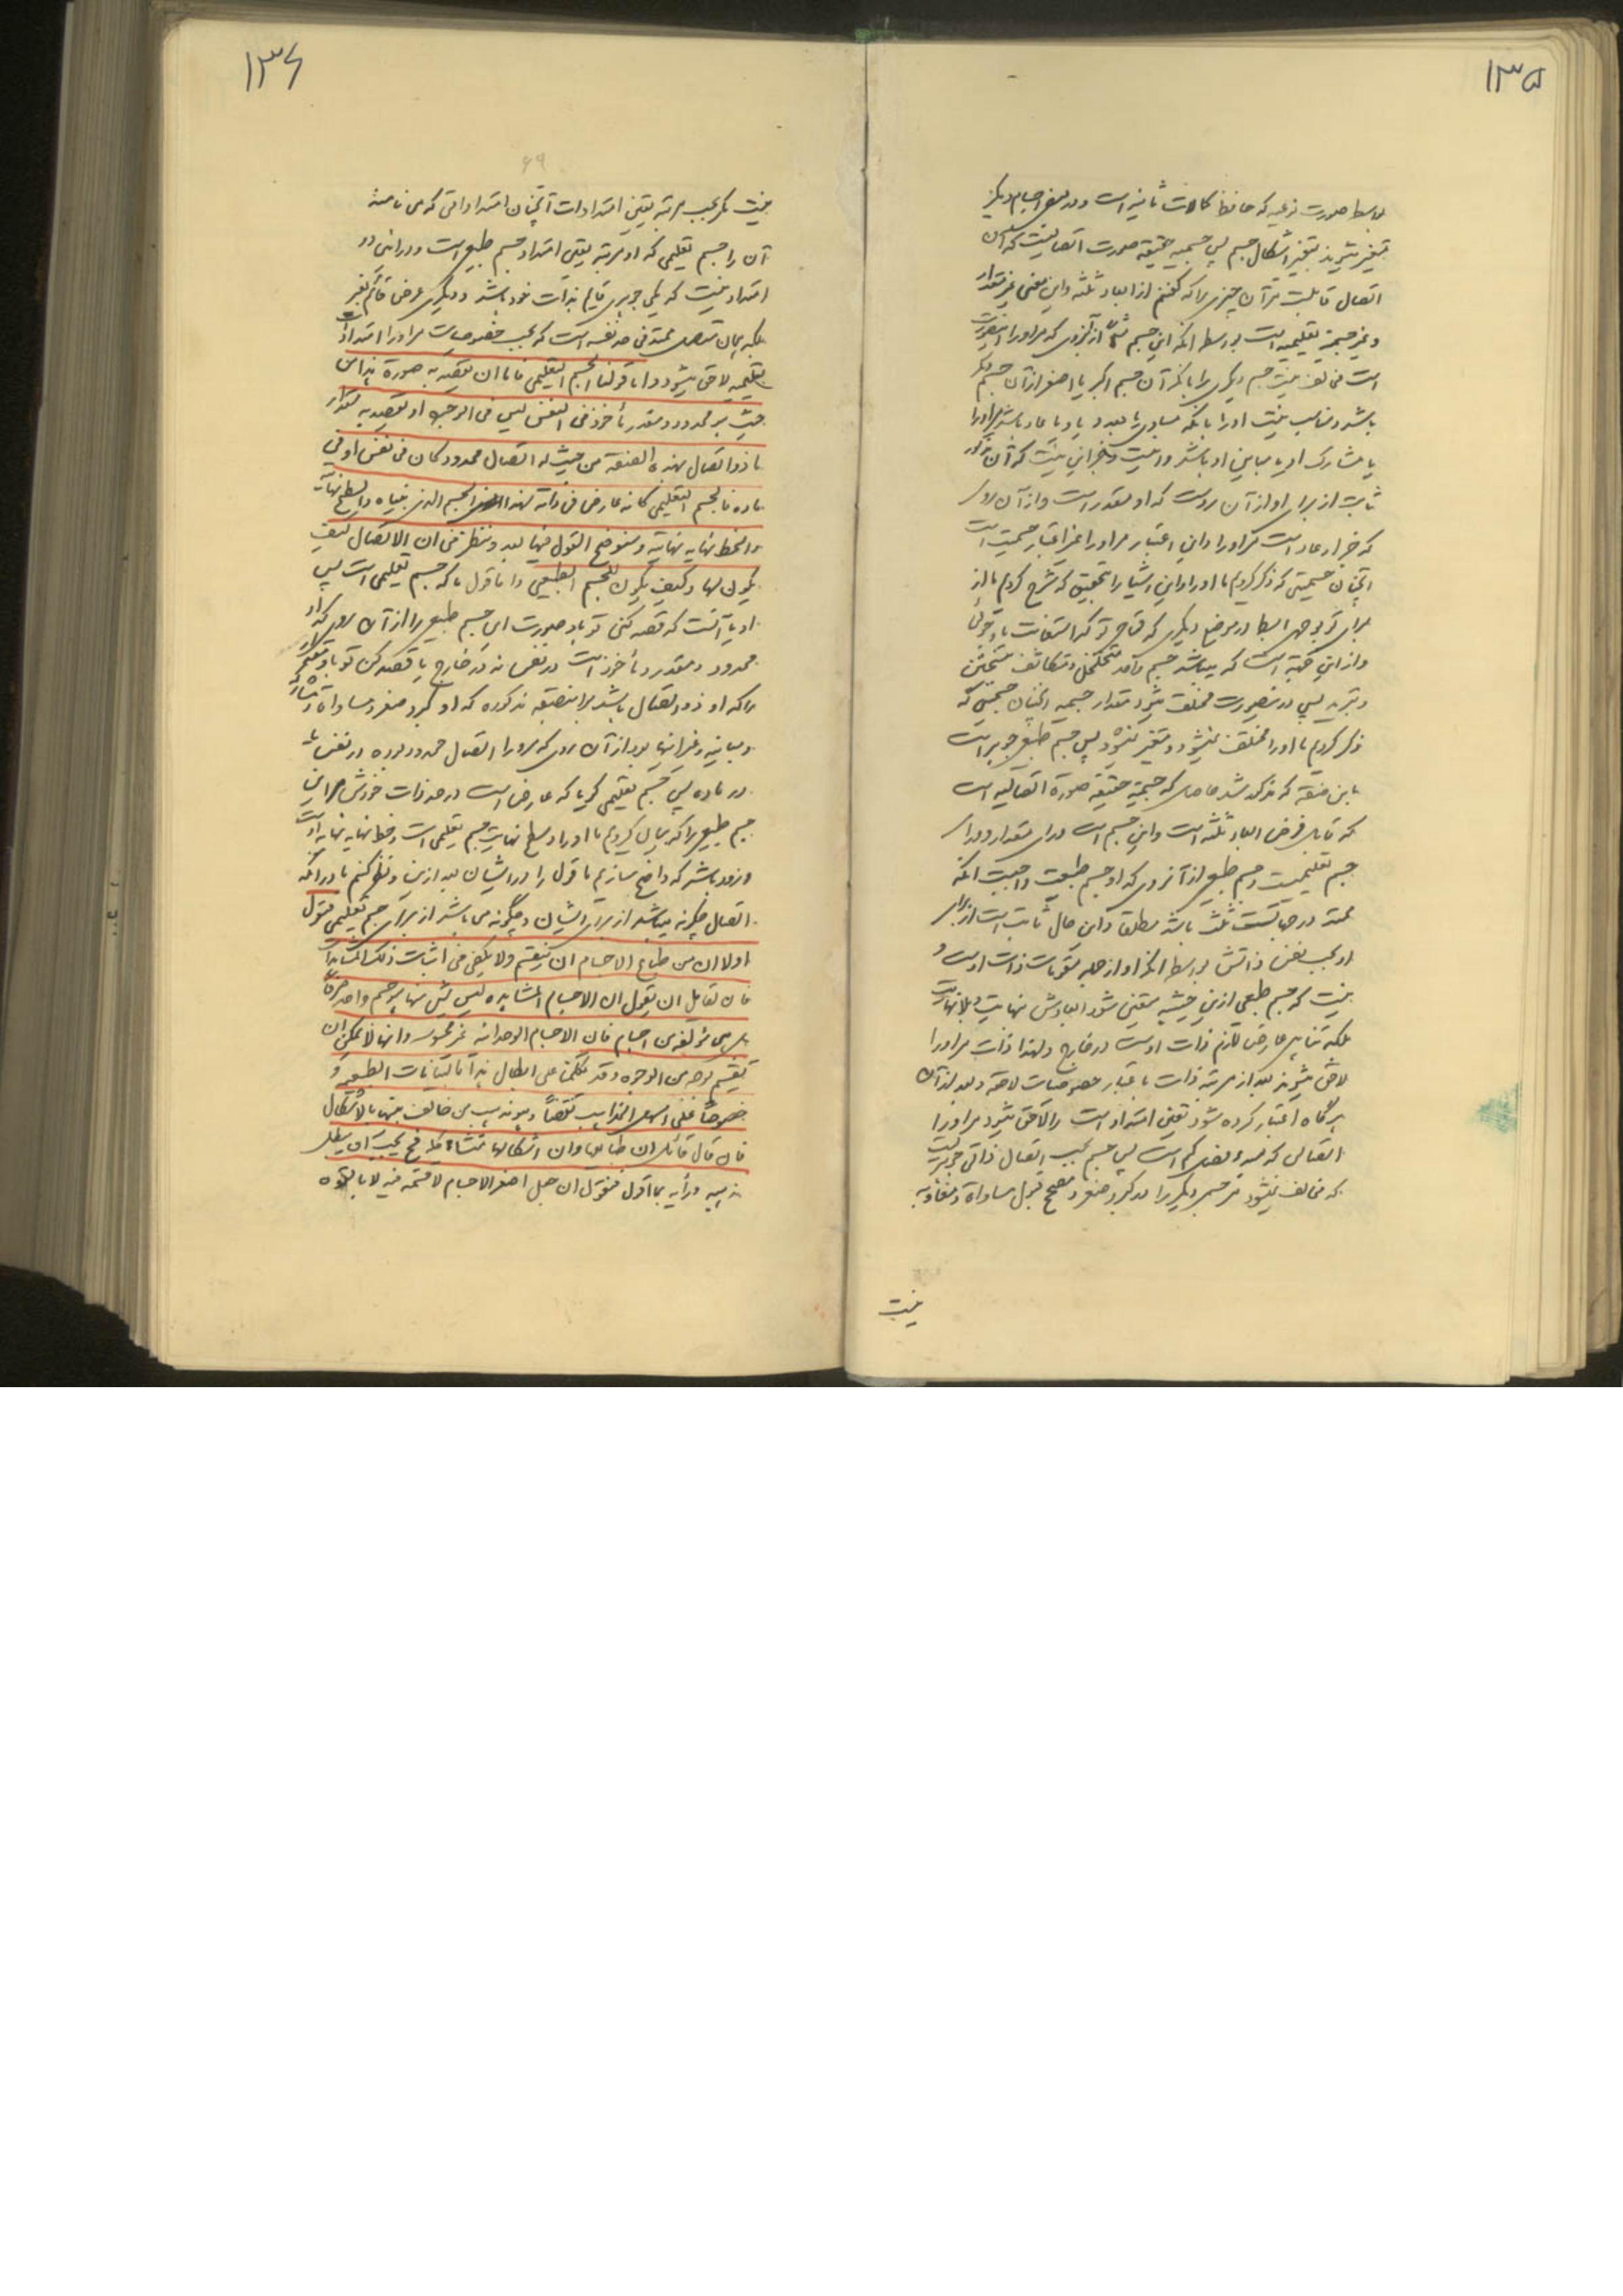 ۱۳۵
بواسطه صورت نوعیه که حافظ کمالات ثانیه است و در بعض اجسام دیگر
متغیر میشوند بتغیر اشکال جسم پس جسمیه حقیقیه صورت اتصالیست که آن
اتصال قابلست مر آن چیزی را که گفتیم از ابعاد ثلثه و این معنی غیر مقدار
و غیر جسمیة تعلیمیه است بواسطه آنکه این جسم مثلاً از آنروی که مر او را اینصورت
است مخالف نیست جسم دیگری را بانکه آن جسم اکبر یا اصغر از آن جسم دیگر
باشد و مناسب نیست او را بانکه مساوی یا معدود یا عاد باشد مر او را
یا مشارک او یا مباین او باشد و نیست این نیست که آن مذکور
ثابت از برای او از آن روست که او مقدر است و از آن روی
که جزء او عاد است مر او را و این اعتبار مر او را غیر اعتبار جسمیت است
آنچنان جسمیتی که ذکر کردیم ما او را و این اشیا را بتحقیق که شرح کردیم ما از
برای تو بوجهی ابسط در موضع دیگری که محتاج تو که استعانت باو جوئی
و از این جهة است که میباشد جسم واحد متخلخل و متکاثف بتسخین
و تبرید پس در اینصورت مختلف میشود مقدار جسمیه آنچنان جسمیتی که
ذکر کردیم ما او را مختلف نمیشود و متغیر نمیشود پس جسم طبیعی جوهر است
باین صفة که مذکور شد حاصل که جسمیة حقیقیه صورة اتصالیه است
که قابل فرض ابعاد ثلثه است و این جسم است ورای مقدار و ورای
جسم تعلیمیست و جسم طبیعی از آنروی که او جسم طبیعیست واجبست آنکه
ممتد در جهات ثلث باشد مطلقا و این حال ثابت است از برای
او بحسب نفس ذاتش بواسطه آنکه او از جمله مقومات ذات اوست و
نیست که جسم طبیعی ازین حیثیه متعین شود ابعادش نهایت و بلانهایت
بلکه تناهی عارض لازم ذات اوست در خارج و لهذا ذات مر او را
لاحق میشوند بعد از مرتبه ذات باعتبار خصوصیات لاحقه و بعد از آن
هرگاه اعتبار کرده شود تعین امتداد است را لاحق میشود مر او را
اتصالی که فصل کم است پس جسم بحسب اتصال ذاتی جوهریست
که مخالف نمیشود مر جسم دیگر را در کبر و صغر و مصحح قبول مساواة و مفاوته
نیست
۱۳۶
۶۹
نیست مگر بحسب مرتبه تعین امتدادات آنچنان امتداداتی که می نامند
آن را جسم تعلیمی که او مرتبه تعین امتداد جسم طبیعی است و در این دو
امتداد نیست که یکی جوهری قایم بذات خود باشد و دیگری عرض قائم بغیر
بلکه همان متصل ممتد فی حد نفسه است که بحسب خصوصیات مر او را امتدادات
تعلیمیه لاحق میشود و اما قولنا الجسم التعلیمی فاما ان یقصد به صورة هذا من
حیث هو محدود و مقدر مأخوذ فی النفس لیس فی الوجود او یقصد به مقدار
ما ذو اتصال بهذه الصفة من حیث له اتصال محدود کان فی نفس او فی
مادة فالجسم التعلیمی کانه عارض فی ذاته لهذا الجسم الذی بیناه والسطح نهایته
والخط نهایة نهایته و سنوضح القول فیها بعد و ننظر فی ان الاتصال کیف
یکون لها و کیف یکون للجسم الطبیعی و اما قول ما که جسم تعلیمی است پس
او یا آنست که قصد کنی تو باو صورت این جسم طبیعی را از آن روی که او
محدود و مقدر و مأخوذ است در نفس نه در خارج یا قصد کنی تو باو مقدار
ما که او ذو اتصال باشد باینصفه مذکوره که او کبر و صغر و مساواة و مشارکه
و مباینه و غیر اینها بود از آن روی که مر او را اتصال محدود بوده در نفس یا
در ماده پس جسم تعلیمی گویا که عارض است در حد ذات خودش مر این
جسم طبیعی را که بیان کردیم ما او را و سطح نهایت جسم تعلیمی است و خط نهایه نهایه اوست
و زود باشد که واضح سازیم ما قول را در ایشان بعد ازین و نظر کنیم ما در آنکه
اتصال چگونه میباشد از برای ایشان و چگونه می باشد از برای جسم تعلیمی فنقول
اولا ان من طباع الاجسام ان ینقسم و لا یکفی فی اثبات ذلک المشاهدات
فان لقائل ان یقول ان الاجسام المشاهدة لیس شیء منها هو جسم واحد صرفاً
بل هی مؤلفة من اجسام فان الاجسام الوحدانیه غیر محسوسه و انها لا یمکن ان
تقسیم بوجه من الوجوه و قد تکلمنا علی ابطال هذا بالبیانات الطبیعیه و
خصوصاً علی اسهل المذاهب نقضاً و هو مذهب من خالف بینها بالاشکال
فان قال قائل ان طبایعها و ان اشکالها متشاکلة فح یجب ان یبطل
مذهبه و رأیه بما اقول فنقول ان جعل اصغر الاجسام لا قسمه فیه لا بالقوه